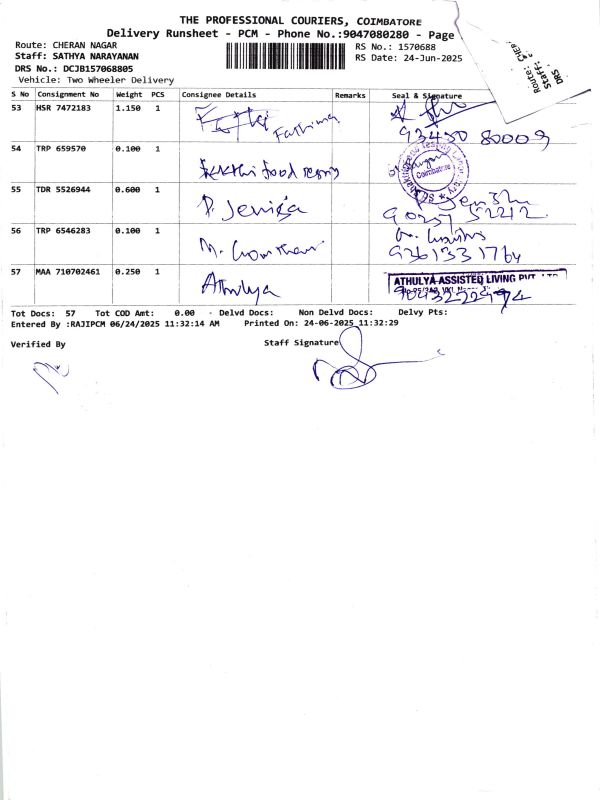 THE PROFESSIONAL COURIERS, COIMBATORE
Delivery Runsheet - PCM - Phone No.:9047080280 - Page
Route: CHERAN NAGAR
RS No.: 1570688
Staff: SATHYA NARAYANAN
RS Date: 24-Jun-2025
DRS No.: DCJB157068805
Vehicle: Two Wheeler Delivery
Route: CHER
Staff:
DRS
S No Consignment No Weight PCS Consignee Details Remarks Seal & Signature
53 HSR 7472183 1.150 1 Fathima
93430 80009
54 TRP 659570 0.100 1 Sakthi food testing
Coimbatore
55 TDR 5526944 0.600 1 P. Jenisa
90257 52212
56 TRP 6546283 0.100 1 M. Gowtham
9361331764
57 MAA 710702461 0.250 1 Athulya ATHULYA ASSISTED LIVING PVT. LTD
9043222974
Tot Docs: 57 Tot COD Amt: 0.00 - Delvd Docs: Non Delvd Docs: Delvy Pts:
Entered By :RAJIPCM 06/24/2025 11:32:14 AM Printed On: 24-06-2025 11:32:29
Verified By Staff Signature